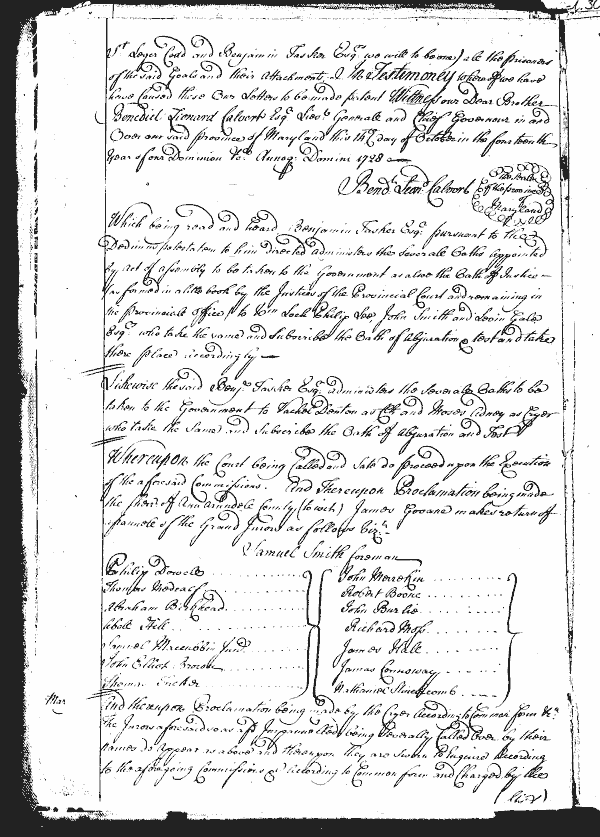 Sr. Leger Codd and Benjamin Tasker Esqr. we will to be one) all the prisoners
of the said Goals and their Attachments. In Testimony whereof we have
have caused these Our Letters to be made patent Witness our Dear Brother
Benedict Leonard Calvert Esqr. Lieut. Generale and Chief Governour in and
Over our said province of Maryland this 14th day of October in the fourteenth
year of our Dominion &c. Annoq. Domini 1728
Bend. Leond. Calvert
of the province
Maryland
Which being read and heard Benjamin Tasker Esqr. pursuant to the
Dedimus potestatem to him directed administers the severale Oaths appointed
by act of assembly to be taken to the Government as alsoe the Oath of Justice
in a little book by the Justices of the Provinciall Court and remaining in
the provinciale Office) to Lock Philip Lee John Smith and Levin Gale
Esqrs. who take the same and subscribe the Oath of Abjuration & test and take
there place accordingly
Likewise the said Benja. Tasker Esqr. administers the severale Oaths to be
taken to the Government to Vachel Denton as Clk and Moses Adney as Cryer
who take the Same and Subscribe the Oath of Abjuration and Test
Whereupon the Court being Called and Sate do proceed upon the Execution
of the aforesaid Commissions. And Thereupon Proclamation being made
the sherif of Ann Arundele County (to wit) James Govane makes return of
pannele of the Grand Jurors as follows vizt.
Samuel Smith foreman
Philip Dowell
Thomas Medcalf
Abraham Birkhead
Abell Hill
Samuel Maccubbin Junr.
John Elliot Brown
Thomas Tucker
John Merrekin
Robert Boone
John Burle
Richard Moss
James Hall
James Connoway
Nathaniel Stinchcomb
Mar
And thereupon Proclamation being made by the Cryer According to Common form &c.
the Jurors aforesaid as afd. Impannelled being severally Called over by their
names do appear as above and thereupon they are Sworn to Enquire according
to the aforegoing Commissions & according to Common form and Charged by the